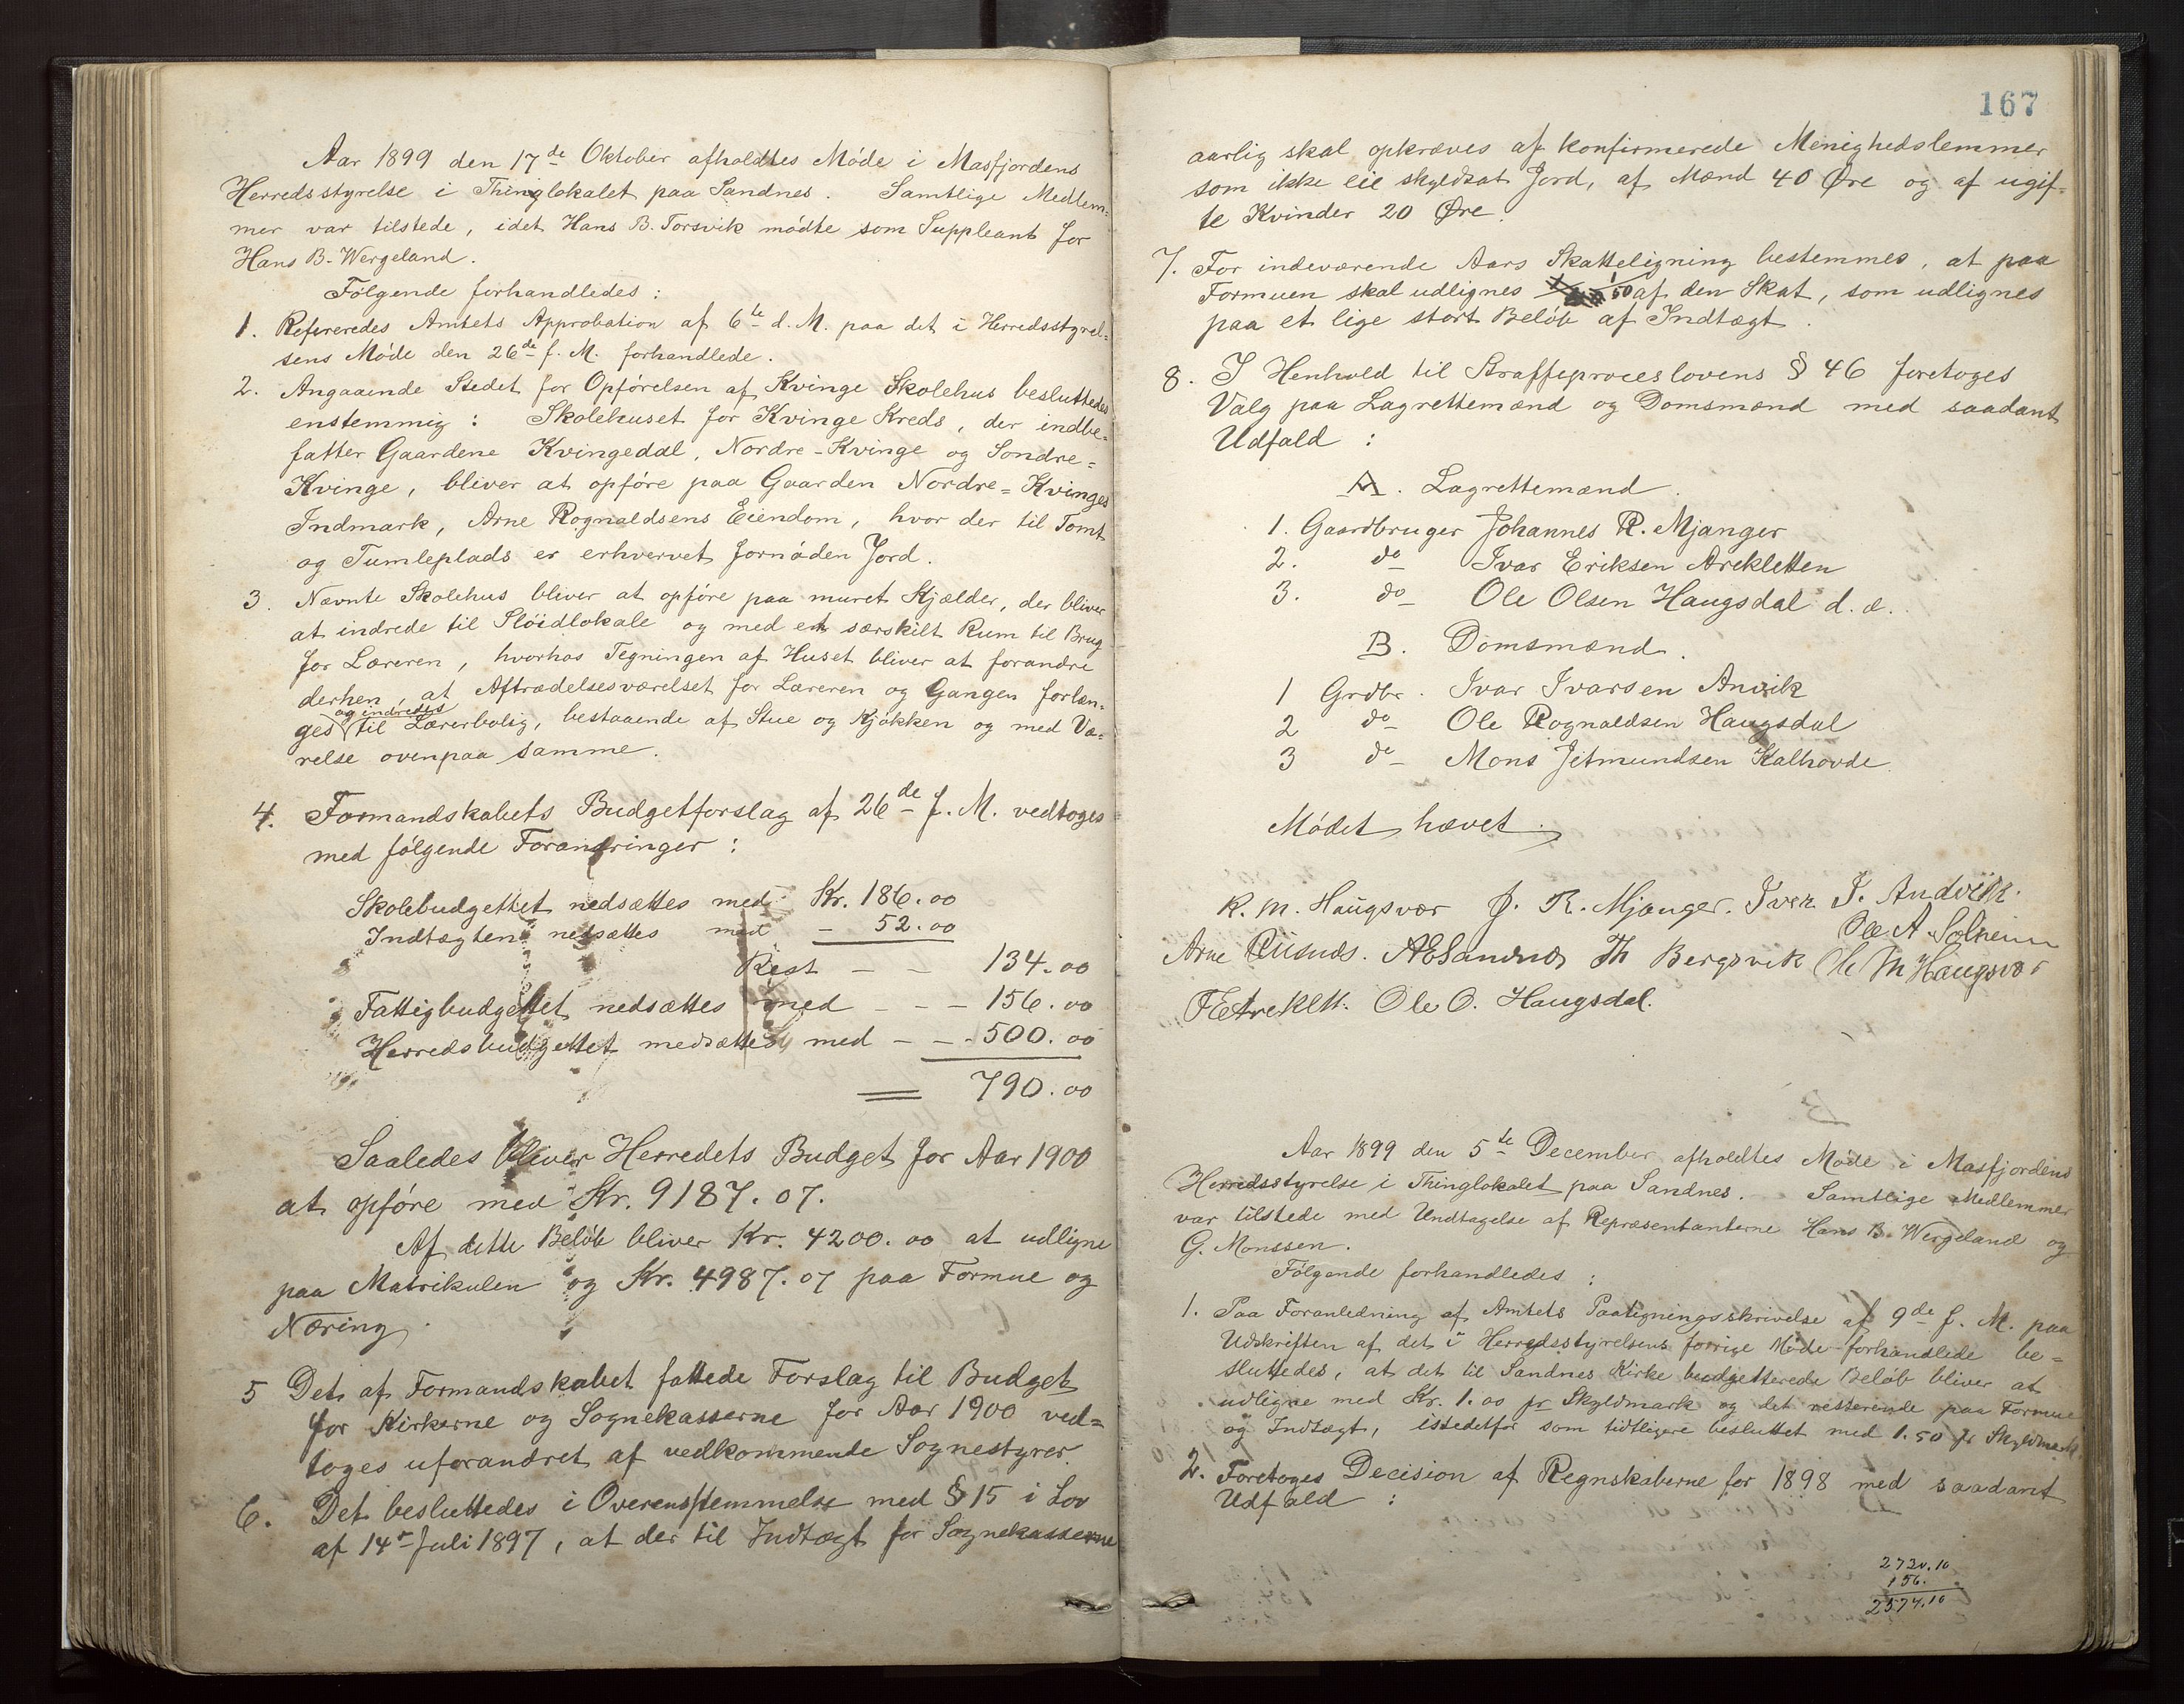 Aar 1899 den 17de Oktober afholdtes Møde i Masfjordens
Herredsstyrelse i Thinglokalet paa Sandnes. Samtlige Medlem-
mer var tilstede, idet Hans B. Torsvik mødte som Suppleant for
Hans B. Wergeland.
Følgende forhandledes:
1. Refereredes Amtets Approbation af 6te d. M. paa det i Herredsstyrel-
sens Møde den 26de f. M. forhandlede.
2. Angaaende Stedet for Opførelsen af Kvinge Skolehus besluttedes
enstemmig: Skolehuset for Kvinge Kreds, der indbe-
fatter Gaardene Kvingedal, Nordre-Kvinge og Søndre=
Kvinge, bliver at opføre paa Gaarden Nordre=Kvinges
Indmark, Arne Rognaldsens Eiendom, hvor der til Tomt
og Tumleplads er erhvervet fornøden Jord.
3. Nævnte Skolehus bliver at opføre paa muret Kjælder, der bliver
at indrede til Sløidlokale og med et særskilt Rum til Brug
for Læreren, hvorhos Tegningen af Huset bliver at forandre
derhen, at Aftrædelsesværelset for Læreren og Gangen forlæn-
og indredes
ges til Lærerbolig, bestaaende af Stue og Kjøkken og med Væ-
relse ovenpaa samme.
4. Formandskabets Budgetforslag af 26de f. M. vedtoges
med følgende Forandringer:
Skolebudgettet nedsættes med Kr. 186.00
Indtægten nedsættes med – 52.00
Rest – – 134.00
Fattigbudgettet nedsættes med – – 156.00
Herredsbudgettet nedsættes med – – 500.00
790.00
Saaledes bliver Herredets Budget for Aar 1900
at opføre med Kr. 9187.07.
Af dette Beløb bliver Kr. 4200.00 at udligne
paa Matrikulen og Kr. 4987.07 paa Formue og
Næring.
5 Det af Formandskabet fattede Forslag til Budget
for Kirkerne og Sognekasserne for Aar 1900 ved=
toges uforandret af vedkommende Sognestyrer.
6. Det besluttedes i Overensstemmelse med § 15 i Lov
af 14de Juli 1897, at der til Indtægt for Sognekasserne
167
aarlig skal opkræves af konfirmerede Menighedslemmer
som ikke eie skyldsat Jord, af Mænd 40 Øre og af ugif-
te Kvinder 20 Øre.
7. For indeværende Aars Skatteligning bestemmes, at paa
Formuen skal udlignes 1/50 af den Skat, som udlignes
paa et lige stort Beløb af Indtægt.
8. I Henhold til Straffeproceslovens § 46 foretoges
Valg paa Lagrettemænd og Domsmænd med saadant
Udfald:
A. Lagrettemænd.
1. Gaardbruger Johannes R. Mjanger
2. do Ivar Eriksen Arekletten
3. do Ole Olsen Haugsdal d. æ.
B. Domsmænd.
1 Grdbr. Ivar Ivarsen Anvik
2 do Ole Rognaldsen Haugsdal
3 do Mons Jetmundsen Kalhovde.
Mødet hævet.
K. M. Haugsvær J. R. Mjanger. Iver I. Andvik.
Ole A Solheim
Arne AESandnes Th Bergsvik Ole M Haugsvær
Ole O. Haugsdal.
Aar 1899 den 5te December afholdtes Møde i Masfjordens
Herredsstyrelse i Thinglokalet paa Sandnes. Samtlige Medlemmer
var tilstede med Undtagelse af Repræsentanterne Hans B. Wergeland og
G. Monssen.
Følgende forhandledes:
1. Paa Foranledning af Amtets Paategningsskrivelse af 9de f. M. paa
Udskriften af det i Herredsstyrelsens forrige Møde forhandlede be=
sluttedes, at det til Sandnes Kirke budgetterede Beløb bliver at
udligne med Kr. 1.00 pr Skyldmark og det resterende paa Formue
og Indtægt, istedetfor som tidligere besluttet med 1.50 pr Skyldmark
2. Foretoges Decision af Regnskaberne for 1898 med saadant
Udfald:
2730.10
156.
2574.10